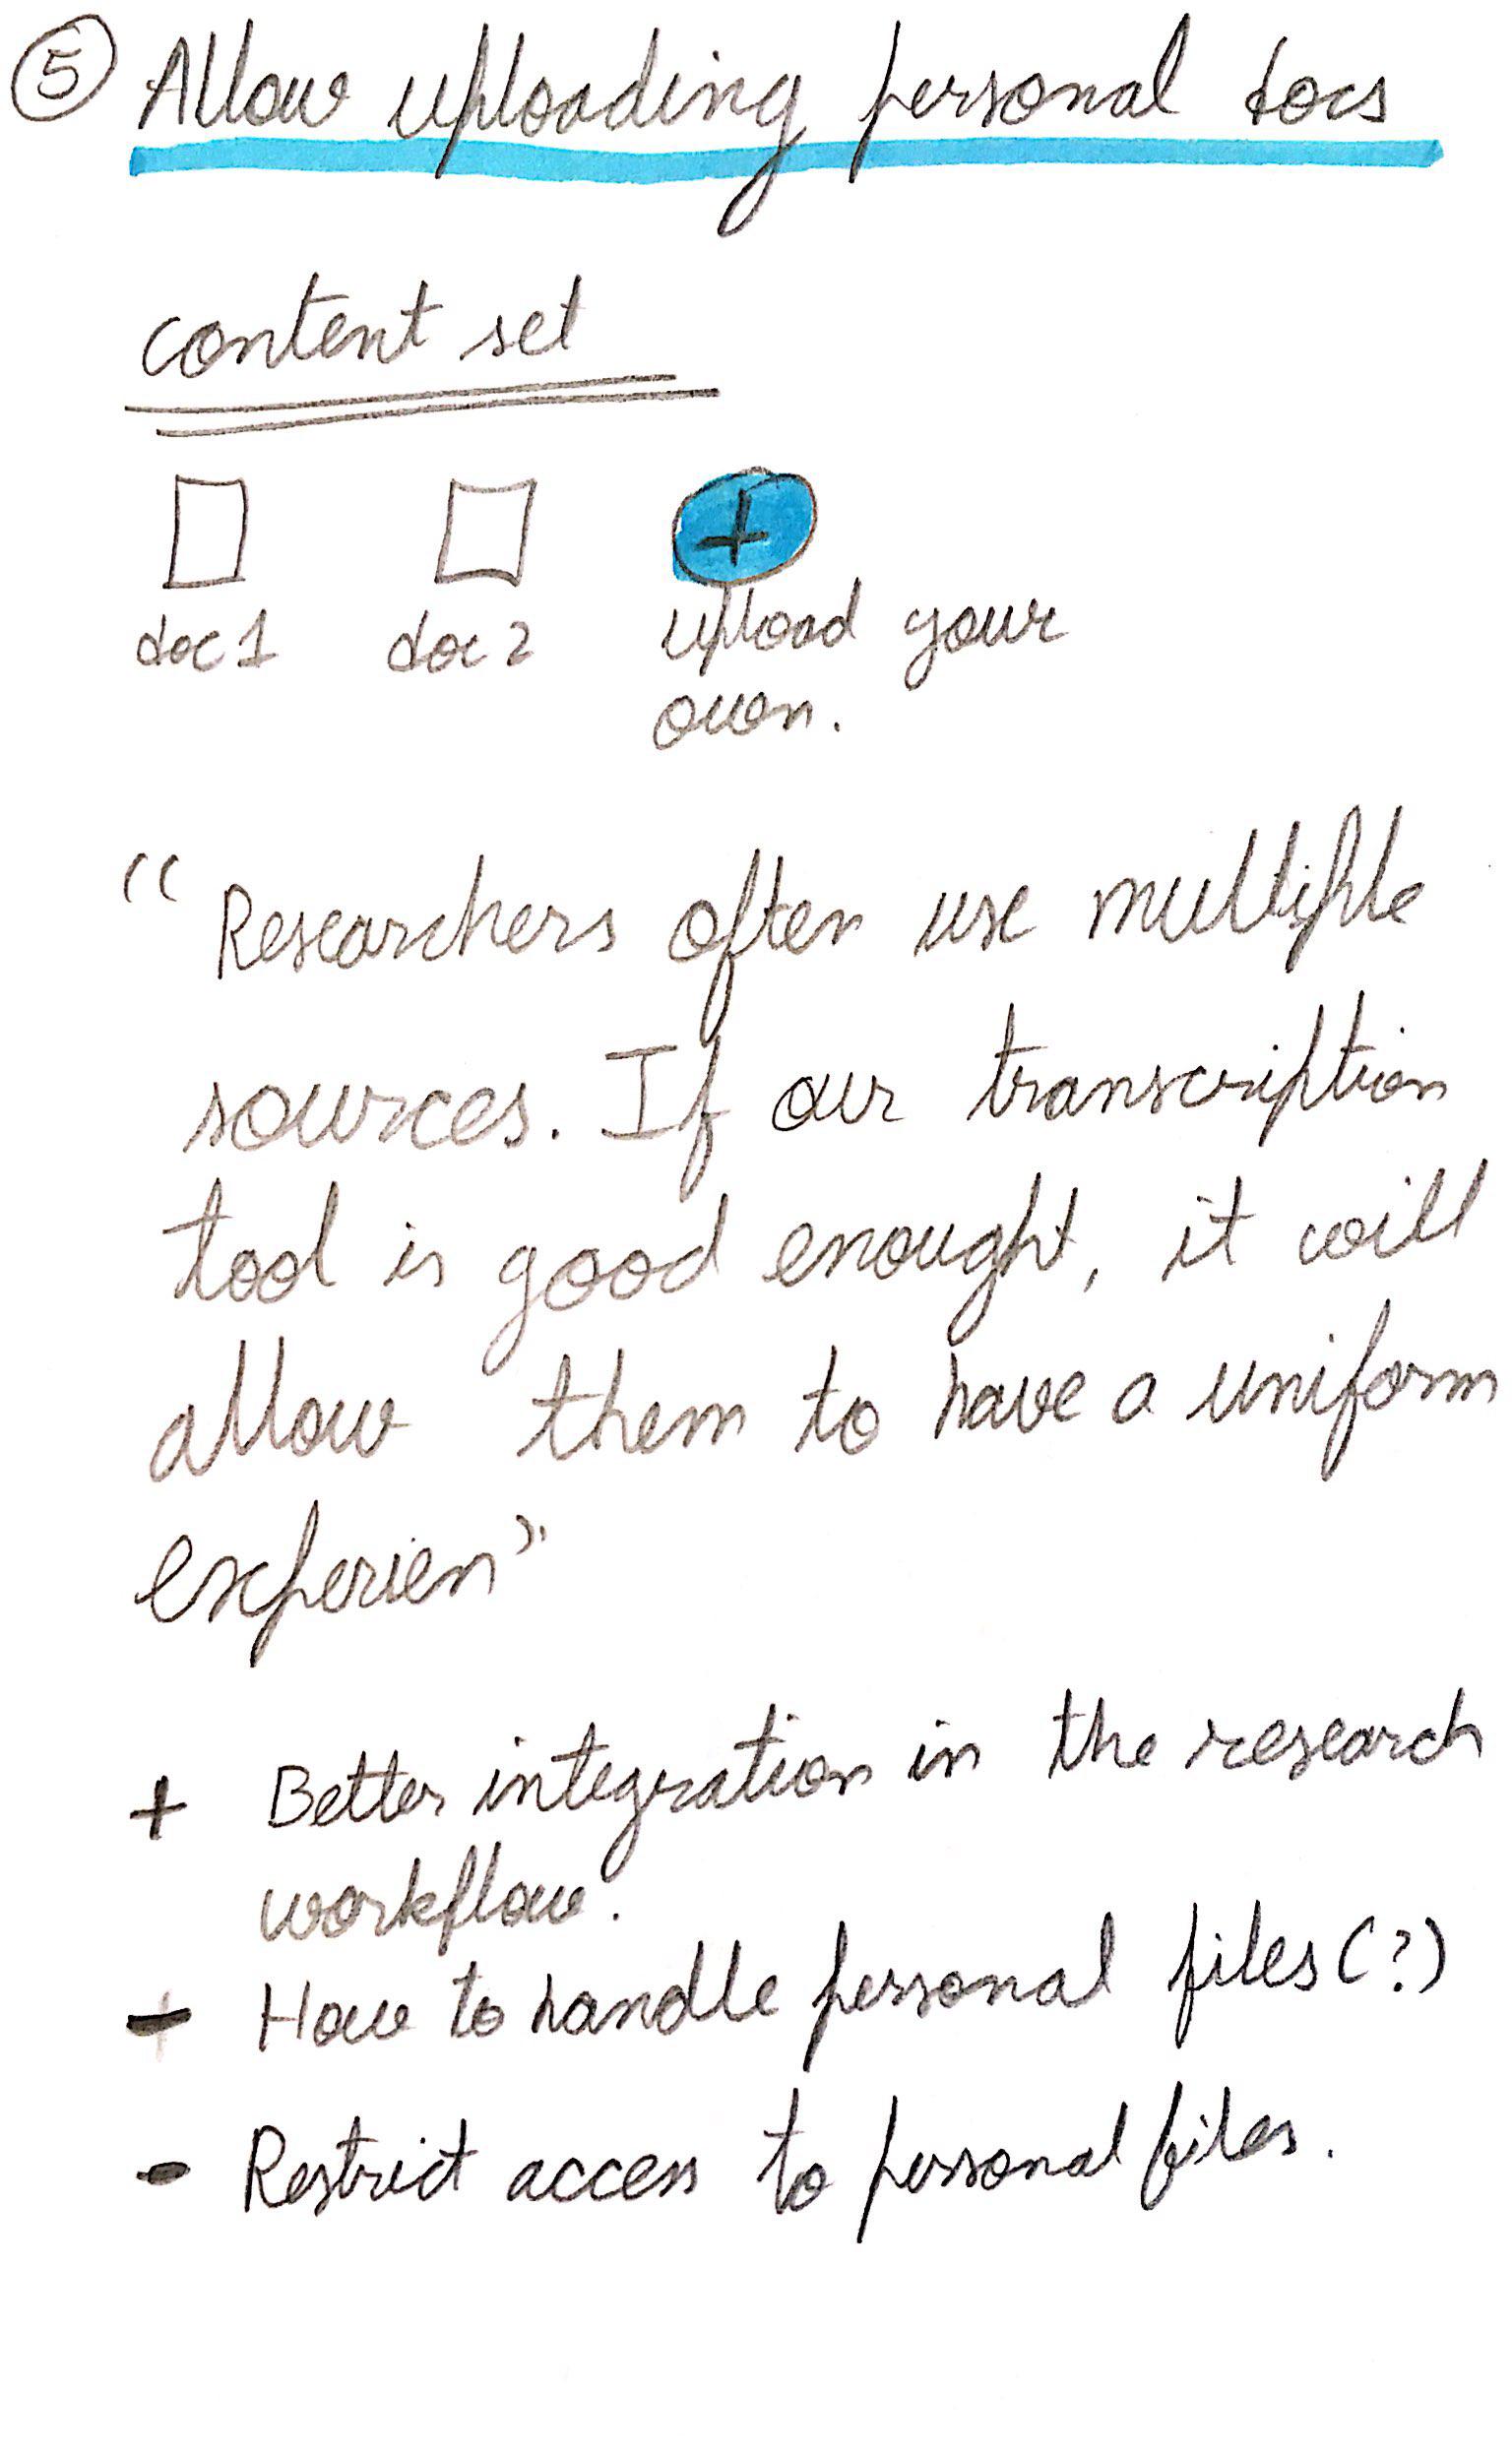 5 Allow uploading personal docs
content set
+
doc 1 doc 2 upload your
own.
"Researchers often use multiple
sources. If our transcription
tool is good enought, it will
allow them to have a uniform
experien"
+ Better integration in the research
workflow.
- How to handle personal files (?)
- Restrict access to personal files.